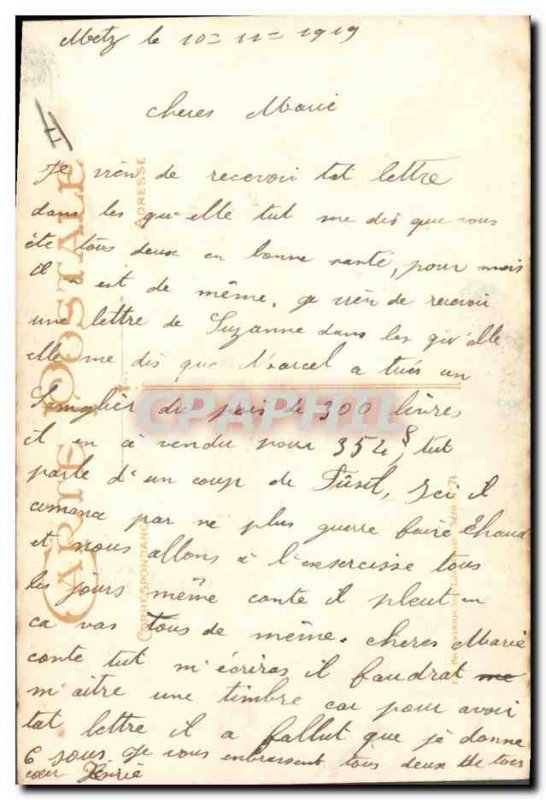 Metz le 10 = 11 = 1919
H
cheres Marie
Je vien de recevoir tat lettre
dans les qu'elle tut me dis que vous
ête tous deux en bonne santé, pour mois
il est de même, ge vien de recevoir
une lettre de Suzanne dans les qu'elle
elle me dis que Marcel a tués un
Senglier du pois de 300 livres
il en à vendu pour 354 f, tut
parle d'un coup de Fusil, Ici il
comance par ne plus guerre faire Chaud
et nous allons à l'exsercisse tous
les jours même conte il pleut en
ca vas tous de même. cheres Marie
conte tut m'écriras il faudrat me
m'aitre une timbre car pour avoir
tat lettre il a fallut que je donne
6 sous Je vous enbrassent tous deux de tous
cœur
CARTE POSTALE
ADRESSE
CORRESPONDANCE
CPAPHIL